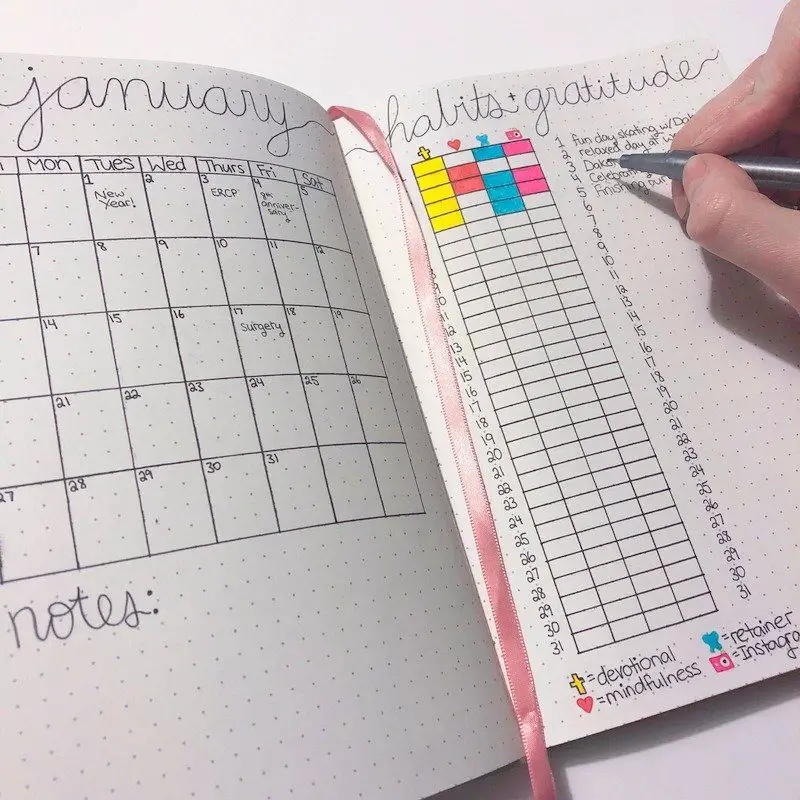 january
Mon Tues Wed Thurs Fri Sat
1 2 3 4 5
New Year!
ERCP
8th
anniver-
sary
7 8 9 10 11 12
14 15 16 17 18 19
surgery
21 22 23 24 25 26
27 28 29 30 31
notes:
habits: gratitude
1 fun day skating w/
2 relaxed day at
3
4 Celebrating
5 Finishing our
6
7
8
9
10
11
12
13
14
15
16
17
18
19
20
21
22
23
24
25
26
27
28
29
30
31
9
10
11
12
13
14
15
16
17
18
19
20
21
22
23
24
25
26
27
28
29
30
31
=devotional
=mindfulness
=retainer